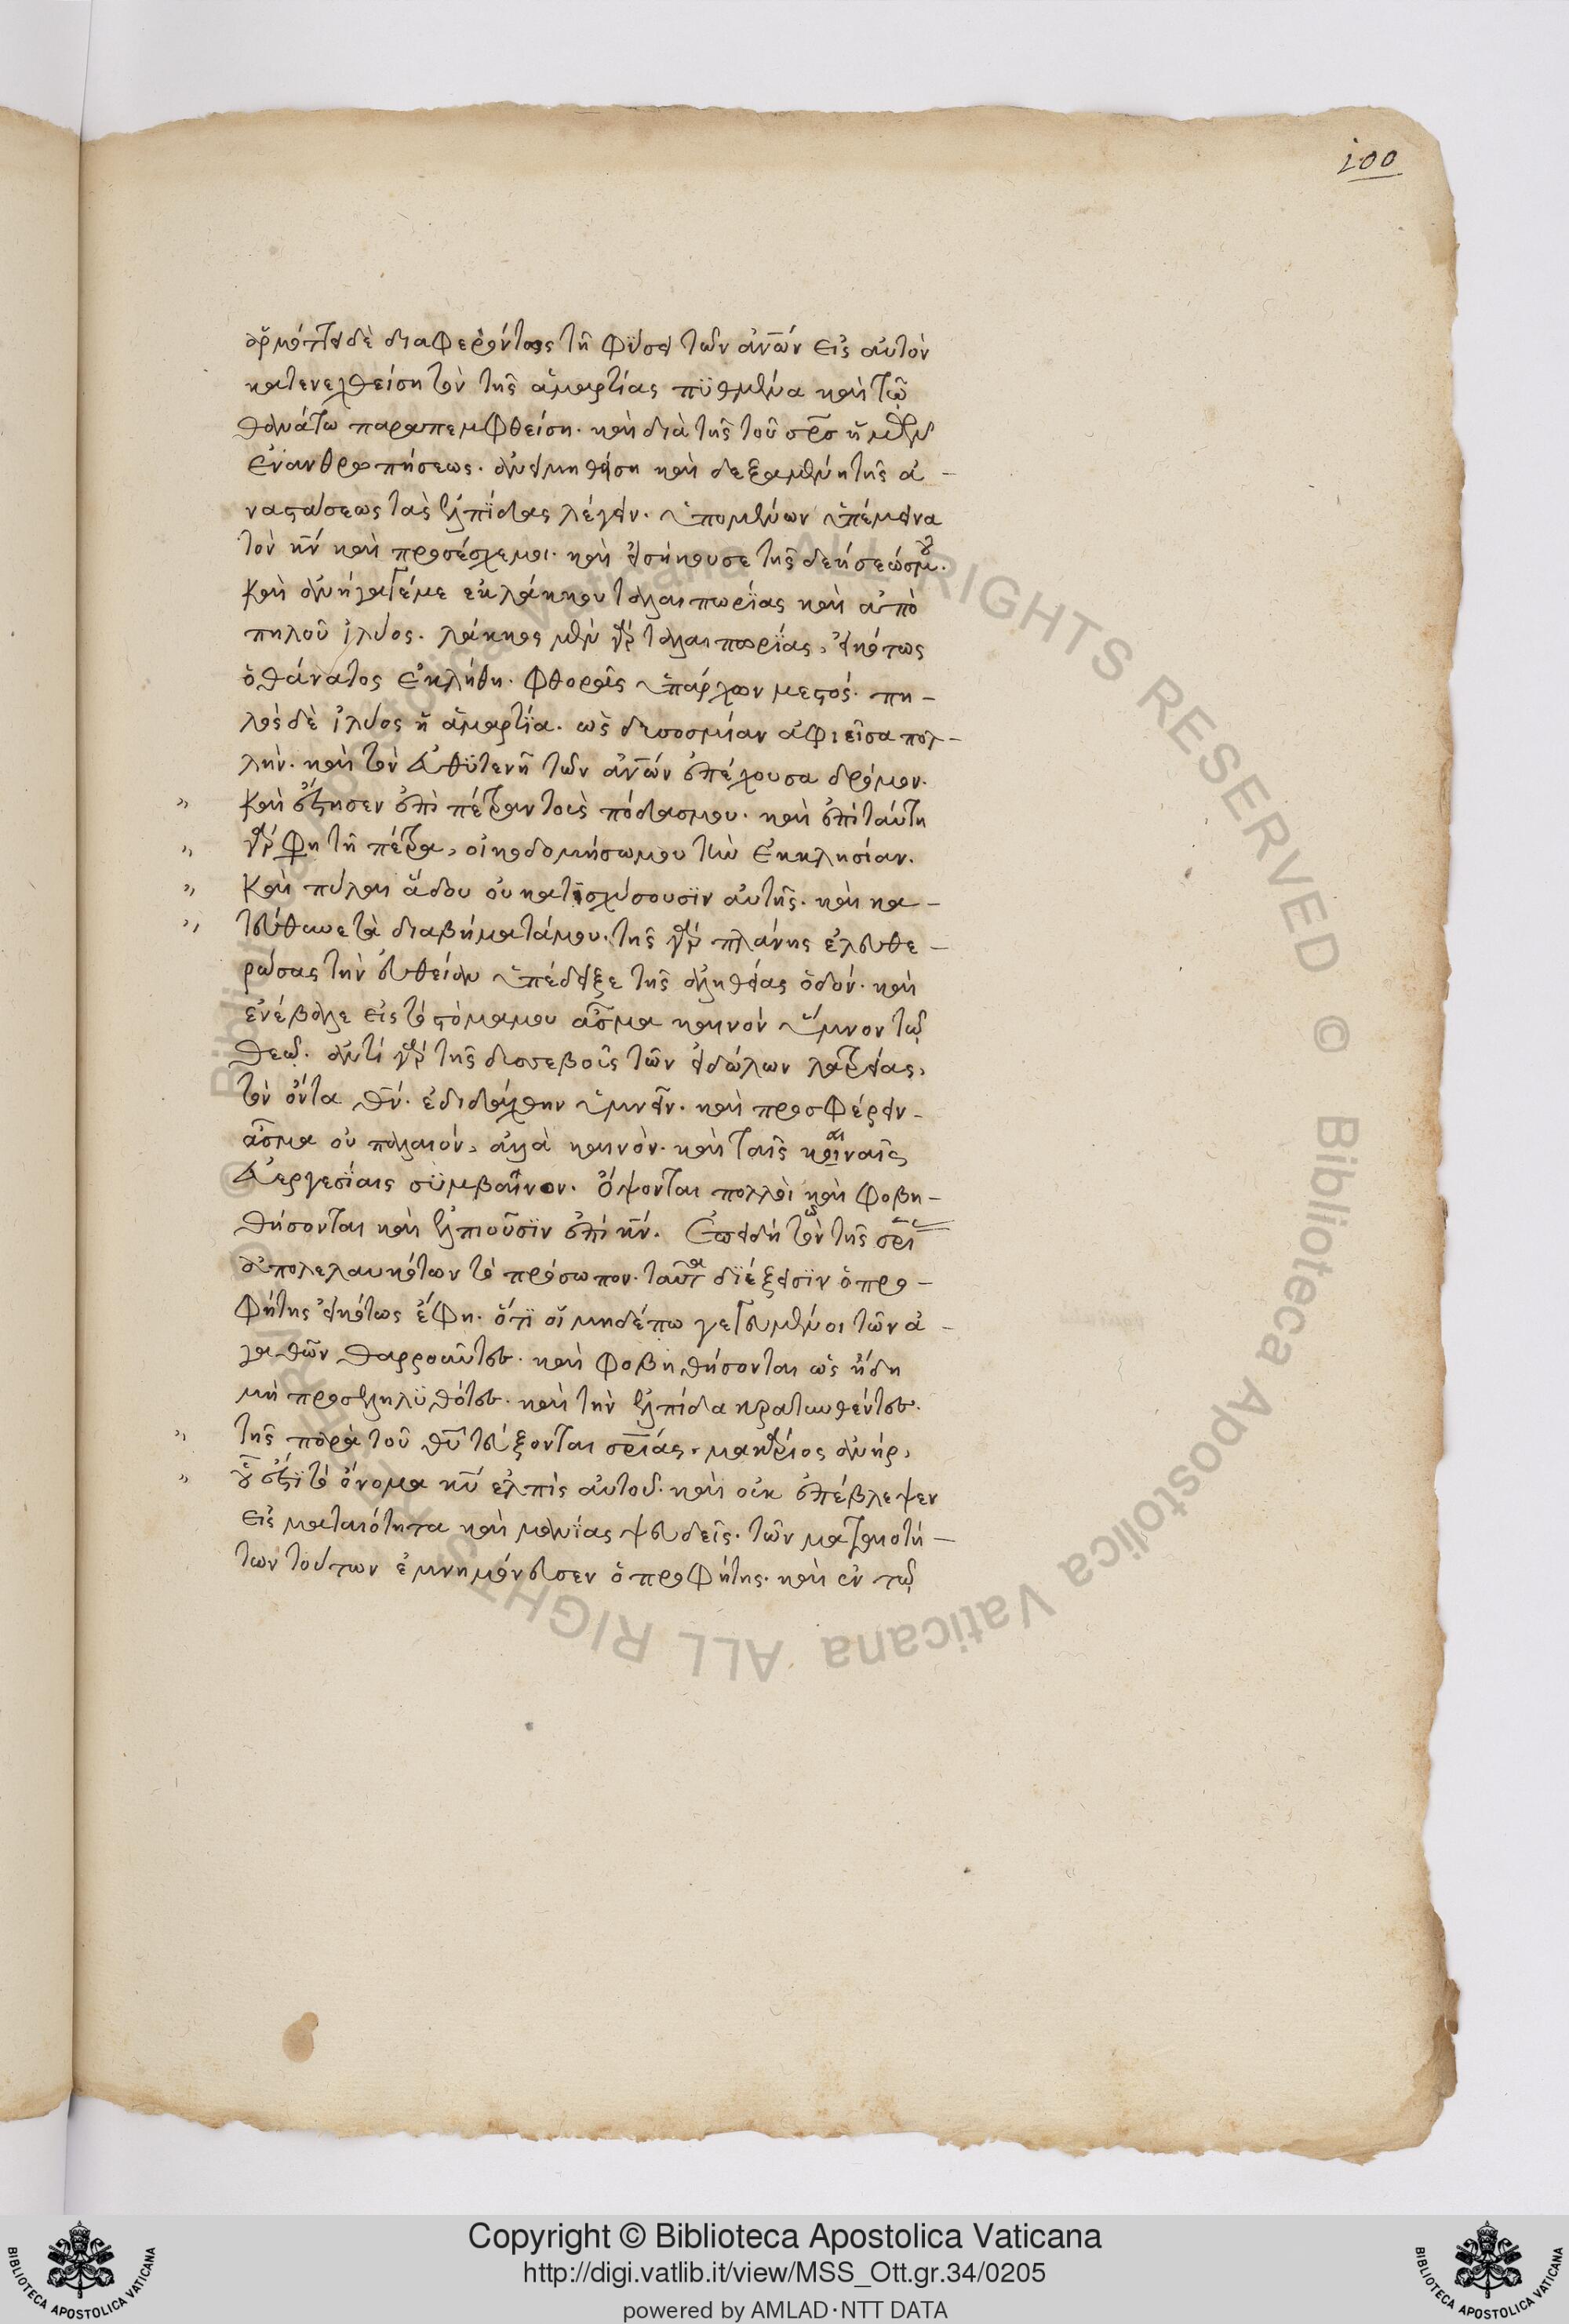 100
ἁρμόττει δὲ διαφερόντως τῆ φύσει τῶν ἀνῶν εἰς αὐτὸν
κατενεχθείση τὸν τῆς ἁμαρτίας πϋθμένα καὶ τῶ
θανάτω παραπεμφθείση. καὶ διὰ τῆς τοῦ σρς ἡμῶν
ἐνανθρωπήσεως. ἀνιμηθείση καὶ δεξαμένη τῆς ἀ-
ναστάσεως τὰς ἐλπίδας λέγειν. ὑπομένων ὑπέμεινα
τὸν κν καὶ προσέσχε μοι. καὶ εἰσήκουσε τῆς δεήσεώς μου.
καὶ ἀνήγαγέ με ἐκ λάκκου ταλαιπωρίας καὶ ἀπὸ
πηλοῦ ἰλύος. λάκκος μὲν γὰρ ταλαιπωρίας, εἰκότως
ὁ θάνατος ἐκλήθη. φθορᾶς ὑπάρχων μεστός. πη-
λὸς δὲ ἰλύος ἡ ἁμαρτία. ὡς δυσοσμίαν ἀφιεῖσα πολ-
λήν. καὶ τὸν εὐθϋτενῆ τῶν ἀνῶν ἐπέχουσα δρόμον.
” καὶ ἔστησεν ἐπὶ πέτραν τοὺς πόδας μου. καὶ ἐπὶ ταύτη
” γάρ φη τῆ πέτρα, οἰκοδομήσω μου τὴν ἐκκλησίαν.
” καὶ πύλαι ἅδου οὐ κατισχύσουσϊν αὐτῆς. καὶ κα-
” τεύθυνε τὰ διαβήματά μου. τῆς γὰρ πλάνης ἐλευθε-
ρώσας τὴν εὐθείαν ὑπέδειξε τῆς ἀληθείας ὁδόν. καὶ
ἐνέβαλε εἰς τὸ στόμα μου ἆσμα καινὸν ὕμνον τῶ
θεῶ. ἀντὶ γὰρ τῆς δυσσεβοῦς τῶν εἰδώλων λατρείας,
τὸν ὄντα θν. ἐδιδάχθην ὑμνεῖν. καὶ προσφέρειν
ἆσμα οὐ παλαιόν, ἀλλὰ καινὸν. καὶ ταῖς καιναῖς
εὐεργεσίαις σϋμβαῖνον. ὄψονται πολλοὶ καὶ φοβη-
θήσονται καὶ ἐλπιοῦσϊν ἐπὶ κν. ἐπειδὴ τὸν τῆς σρι
ἀπολελαυκότων τὸ πρόσωπον. ταῦτα δϊέξεισϊν ὁ προ-
φήτης εἰκότως ἔφη. ὅτϊ οἱ μηδέπω γεγευμένοι τῶν ἀ-
γαθῶν θαρροῦντες. καὶ φοβηθήσονται ὡς ἤδη
μὴ προσεληλϋθότες. καὶ τὴν ἐλπίδα κρατυνθέντες.
” τῆς παρὰ τοῦ θυ τεύξονται σριας. μακάριος ἀνήρ,
” οὗ ἐστϊ τὸ ὄνομα κυ ἐλπὶς αὐτοῦ. καὶ οὐκ ἐπέβλεψεν
εἰς ματαιότητα καὶ μανίας ψευδεῖς. τῶν ματαιοτή-
των τούτων ἐμνημόνευσεν ὁ προφήτης. καὶ ἐν τῶ
Copyright © Biblioteca Apostolica Vaticana
http://digi.vatlib.it/view/MSS_Ott.gr.34/0205
powered by AMLAD·NTT DATA